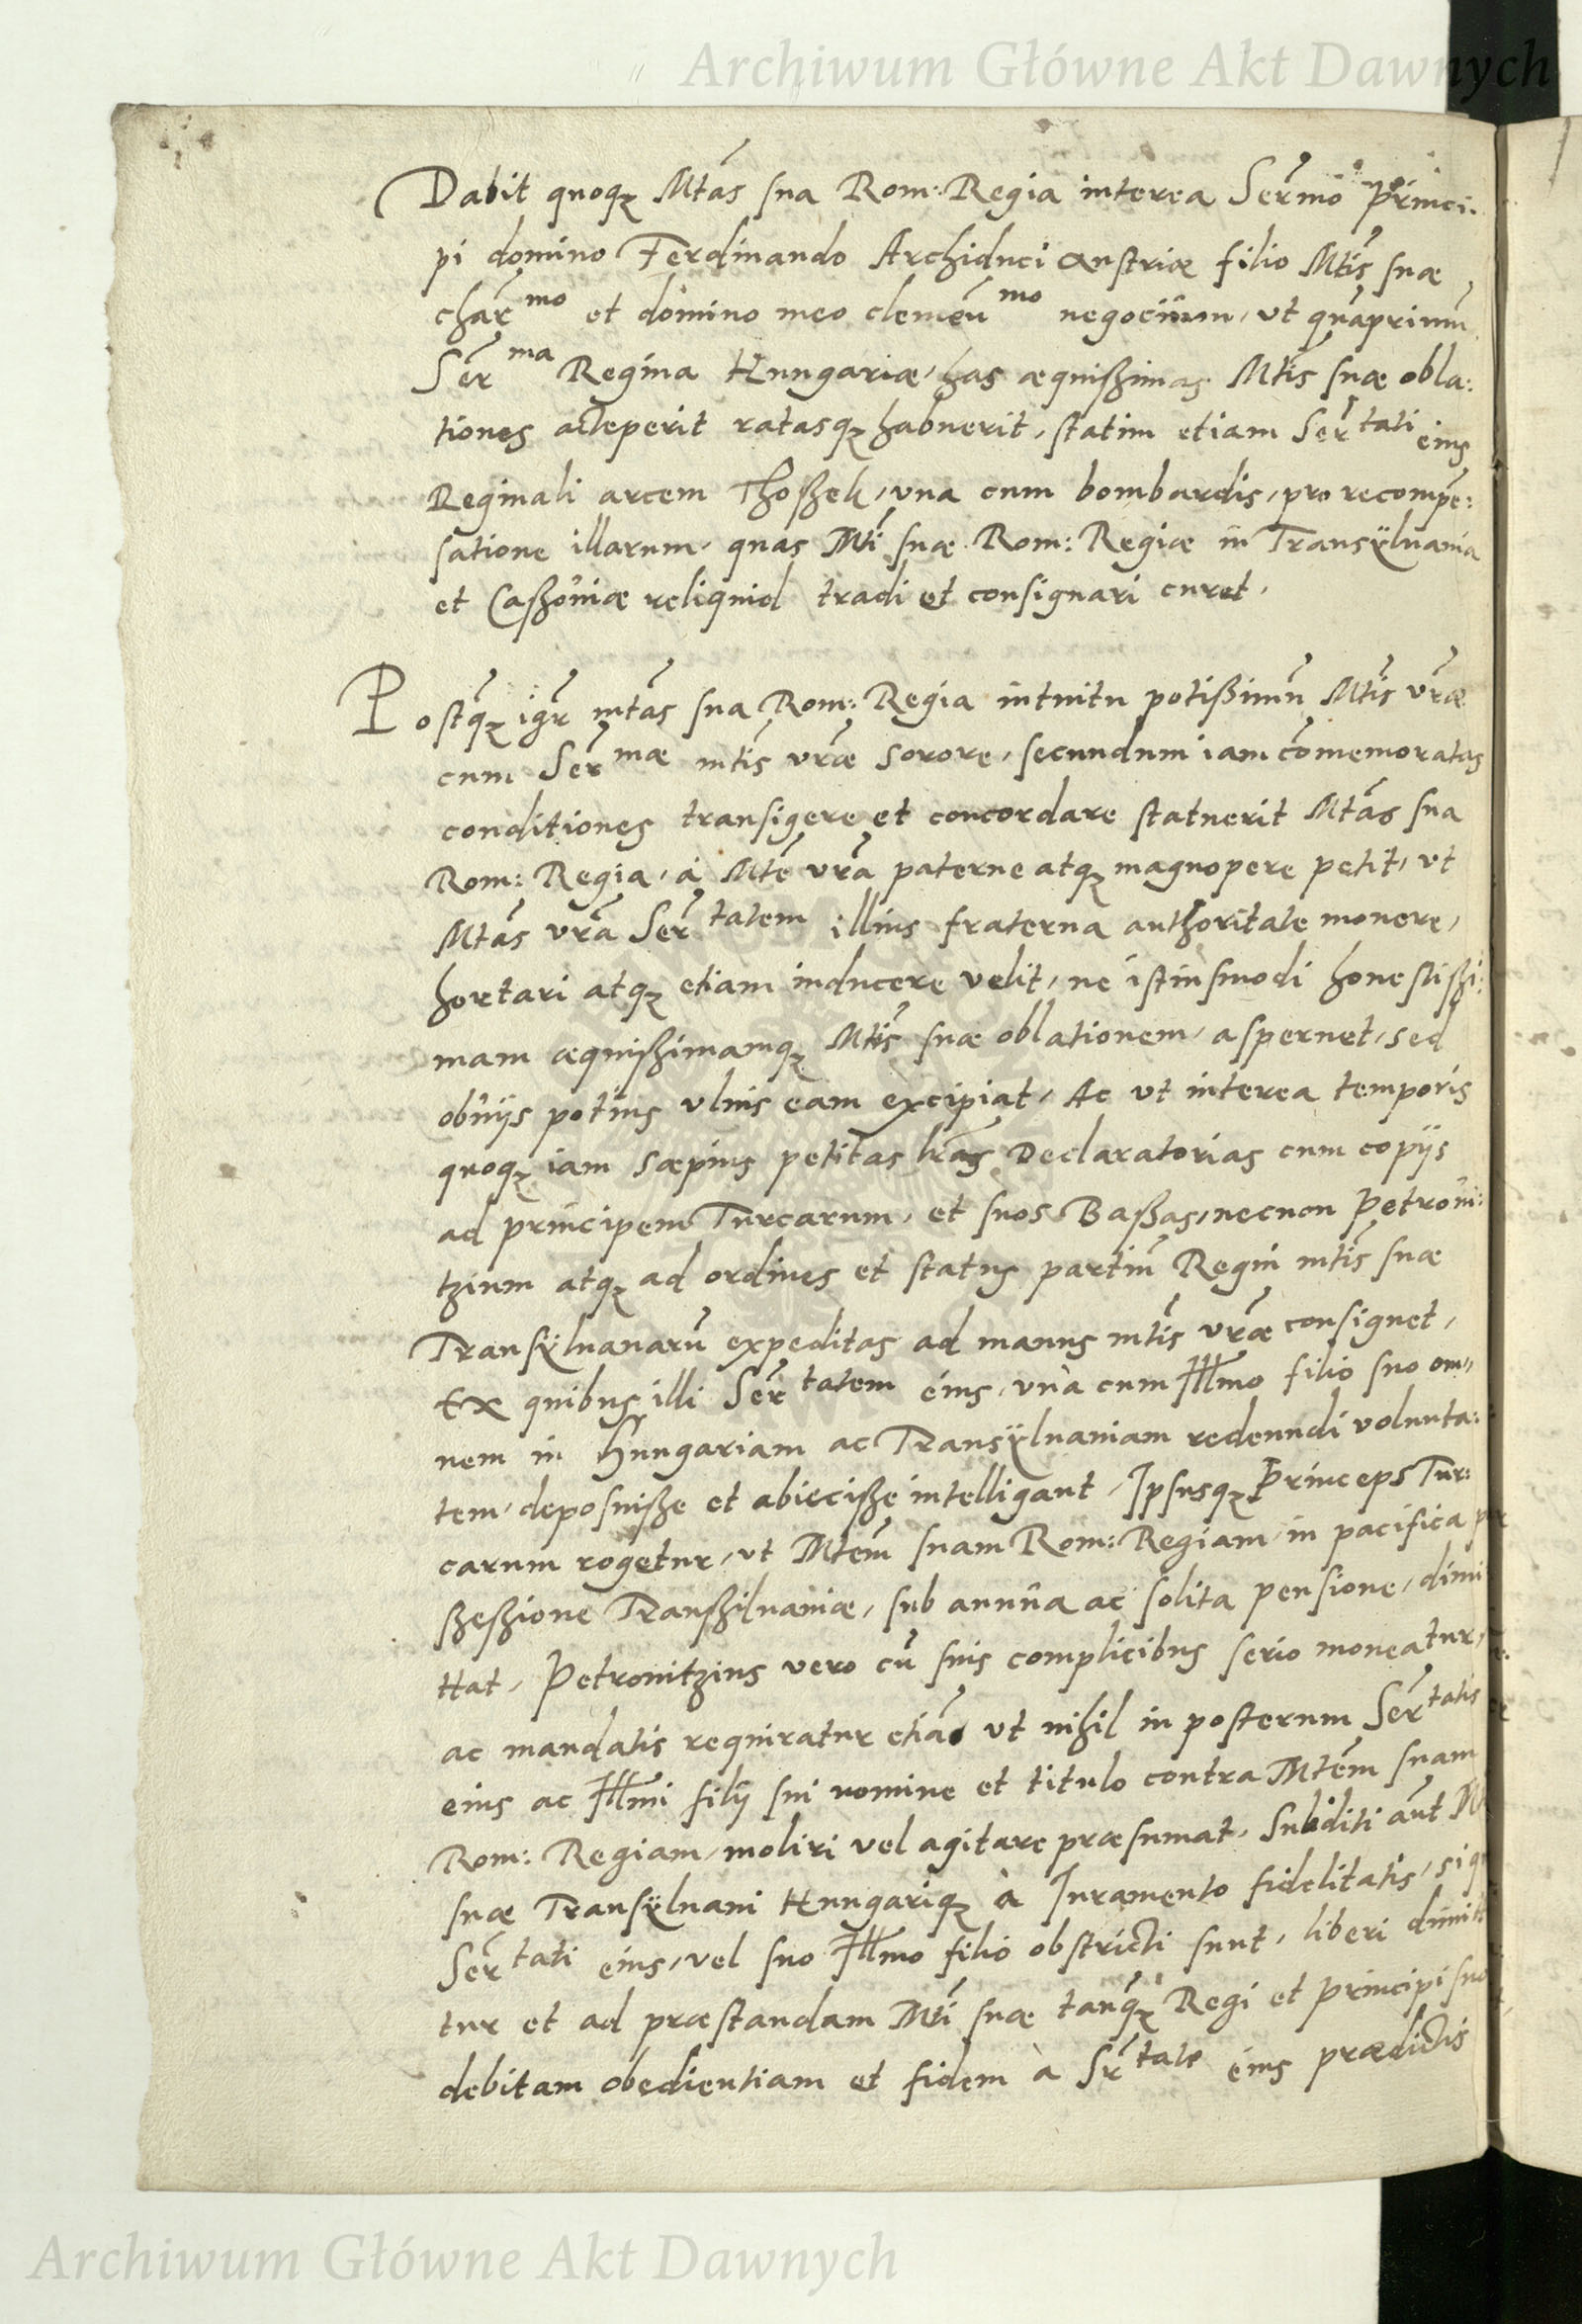 Archiwum Główne Akt Dawnych
Dabit quoqȝ Mtas sua Rom: Regia interea Sermo Princi-
pi domino Ferdinando Archiduci Austriæ filio Mtis suæ
char mo et domino meo clemen mo negocium, vt quāprimū
Ser ma Regina Hungariæ, has æquißimas Mtis suæ obla:
tiones acceperit ratasqȝ habuerit, statim etiam Ser tati eius
Reginali arcem Thoßek, vna cum bombardis, pro recompē:
satione illarum, quas Mti suæ Rom: Regiæ in Transÿluania
et Caßouiæ reliquid tradi et consignari curet.
Postqȝ igr mtas sua Rom: Regia intuitu potißimū Mtis vræ
cum Ser mæ mtis vræ sorore, secundum iam cōmemoratas
conditiones transigere et concordare statuerit Mtas sua
Rom: Regia, à Mte vra paterne atqȝ magnopere petit, vt
Mtas vra Ser tatem illius fraterna authoritate monere,
hortari atqȝ etiam inducere velit, ne istiusmodi honestißi:
mam æquißimamqȝ Mtis suæ oblationem, aspernet, sed
obuijs potius vlnis eam excipiat, Ac vt interea temporis
quoqȝ iam sæpius petitas lras Declaratorias cum copijs
ad principem Turcarum, et suos Baßas, necnon Petroui:
tzium atqȝ ad ordines et status partiū Regni mtis suæ
Transÿluanarū expeditas ad manus mtis vræ consignet,
Ex quibus illi Ser tatem eius, vnà cum Illmo filio suo om„
nem in Hungariam ac Transÿluaniam redeundi volunta:
tem, deposuiße et abieciße intelligant, Ipsusqȝ Princeps Tur:
carum rogetur, vt Mtem suam Rom: Regiam, in pacifica
ßeßione Transßiluaniæ, sub annua ac solita pensione, dimi
ttat, Petrouitzius vero cū suis complicibus serio moneatur,
ac mandatis requiratur etiā vt nihil in posterum Ser tatis
eius ac Illmi filij sui nomine et titulo contra Mtem suam
Rom: Regiam, moliri vel agitare præsumat, Subditi aut
suæ Transÿluani Hungariqȝ à Iuramento fidelitatis,
Ser tati eius, vel suo Illmo filio obstricti sunt, liberi dimitt
tur et ad præstandam Mti suæ tanqȝ Regi et Principi suo
debitam obedientiam et fidem à Sr tate eius prædictis
Archiwum Główne Akt Dawnych